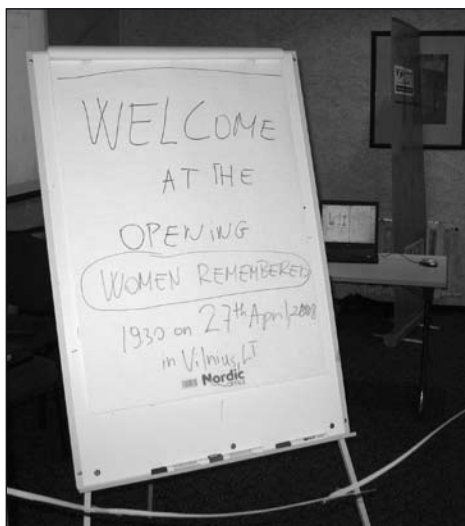 WELCOME
AT THE
OPENING
WOMEN REMEMBERED
1930 on 27th April/2008
in Vilnius, LT
Nordic